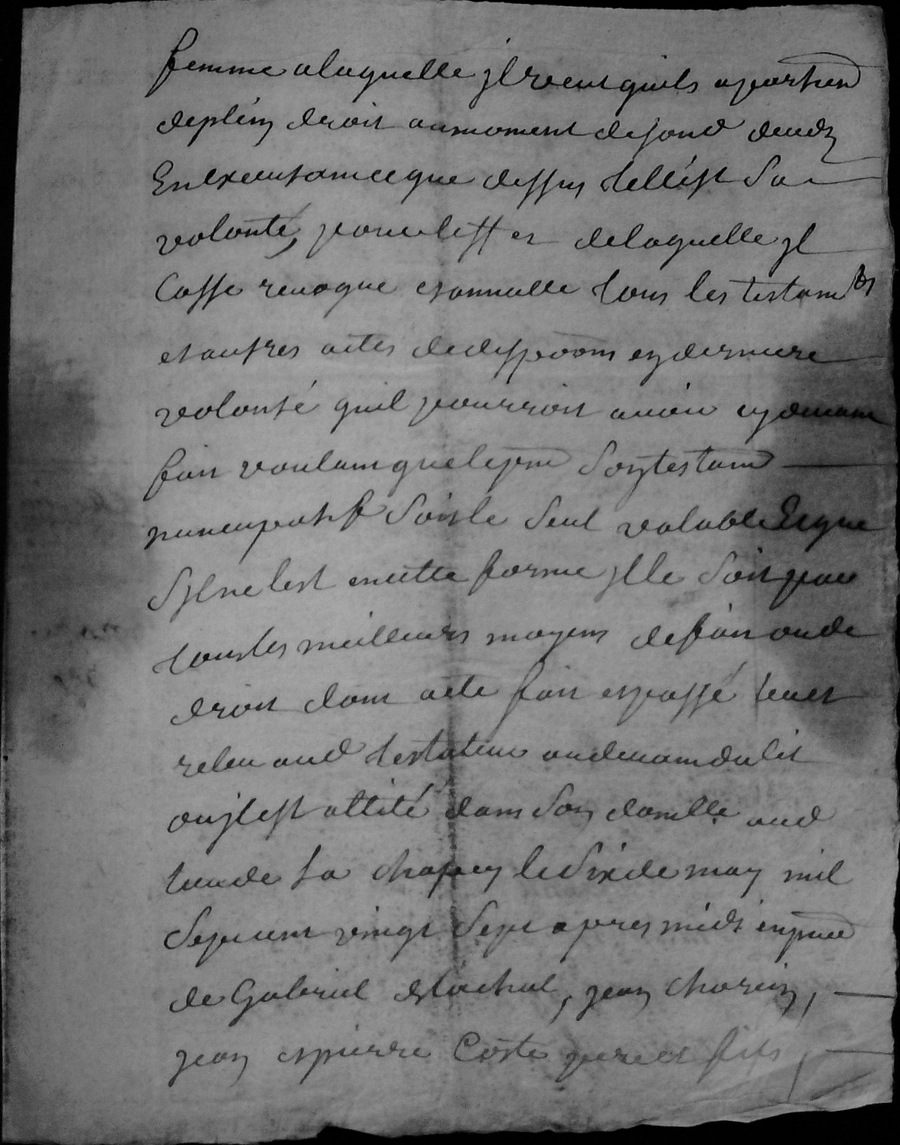 femme a laquelle jl veut quils apartien
deplein droit aumoment de sond deced
En executant ceque dessus telle est Sa
volonté, pour leffet delaquelle jl
Casse revoque et annulle tous les testamts
et autres actes dedisposons en derniere
volonté quil pourroit avoir cy devant
fait voulant que lepnt Son testamt
nuncupatif Soit le Seul valable Et que
Sil ne lest en cette forme jl le Soit par
tous les meilleurs moyens de fait ou de
droit dont acte fait et passé leu et
releu aud testateur au devant du lit
ou jl est allité dans Son domlle aud
lieu de le six de may mil
Sept cent vingt Sept apres midi en pnce
de Gabriel , jean ,
jean et pierre Coste pere et fils